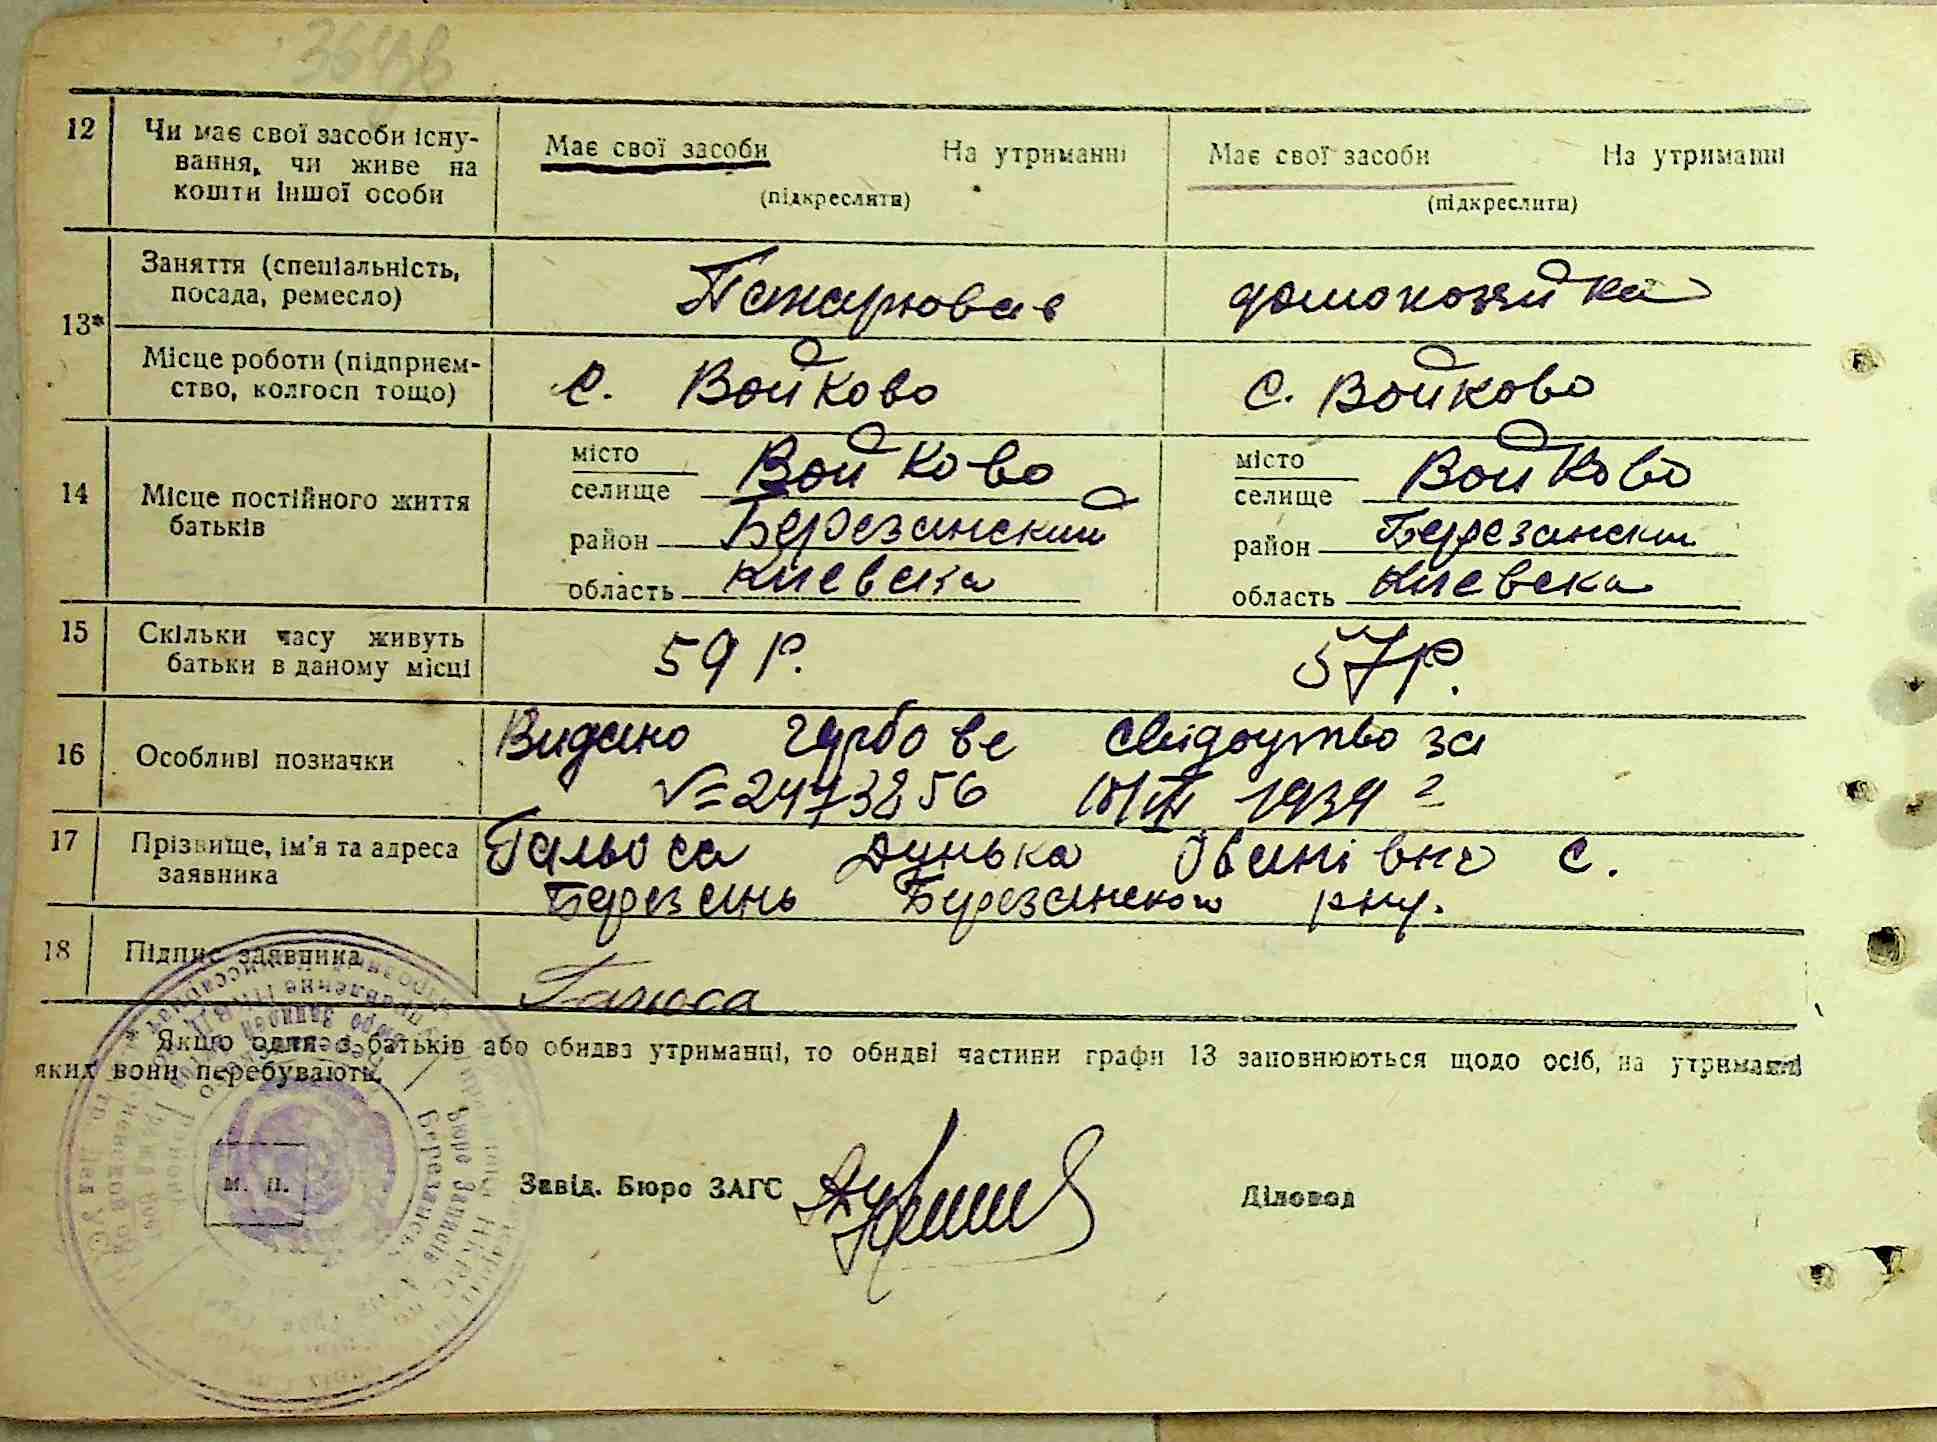 12 Чи має свої засоби існу-
вання, чи живе на
кошти іншої особи
Має свої засоби На утриманні
(підкреслити)
Має свої засоби На утриманні
(підкреслити)
13*
Заняття (спеціальність,
посада, ремесло)
домохозяйка
Місце роботи (підприєм-
ство, колгосп тощо)
с. Войково
с. Войково
14 Місце постійного життя
батьків
місто
селище Войково
район Березанский
область Киевска
місто
селище Войково
район Березански
область Киевска
15 Скільки часу живуть
батьки в даному місці
59 р.
57 р.
16 Особливі позначки
Видано гербове свідоцтво за
№=2473856 1939 г
17 Прізвище, ім'я та адреса
заявника
Гальоса Дунька с.
Березань Березанского рну.
18 Підпис заявника
Галюса
Якщо один з батьків або обидва утриманці, то обидві частини графи 13 заповнюються щодо осіб, на утриманні
яких вони перебувають.
М. П.
Завід. Бюро ЗАГС
Діловод